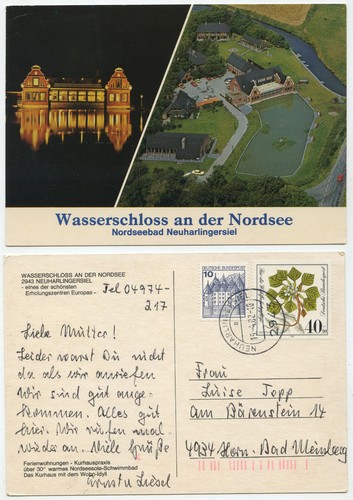 Wasserschloss an der Nordsee
Nordseebad Neuharlingersiel
WASSERSCHLOSS AN DER NORDSEE
2943 NEUHARLINGERSIEL
- eines der schönsten
Erholungszentren Europas -
Tel 04974-
217
Liebe Mutter!
Leider warst Du nicht
da als wir anriefen
Wir sind gut ange-
kommen. Alles gut
hier. Wir rufen mal
wieder an. Viele Grüße
Ernst u Liesel
Ferienwohnungen - Kurhauspraxis
über 30° warmes Nordseesole-Schwimmbad
Das Kurhaus mit dem Wohn-Idyll
10
DEUTSCHE BUNDESPOST
40
Deutsche Bundespost
Frau
Luise Topp
am Bärenstein 14
4934 Horn-Bad Meinberg